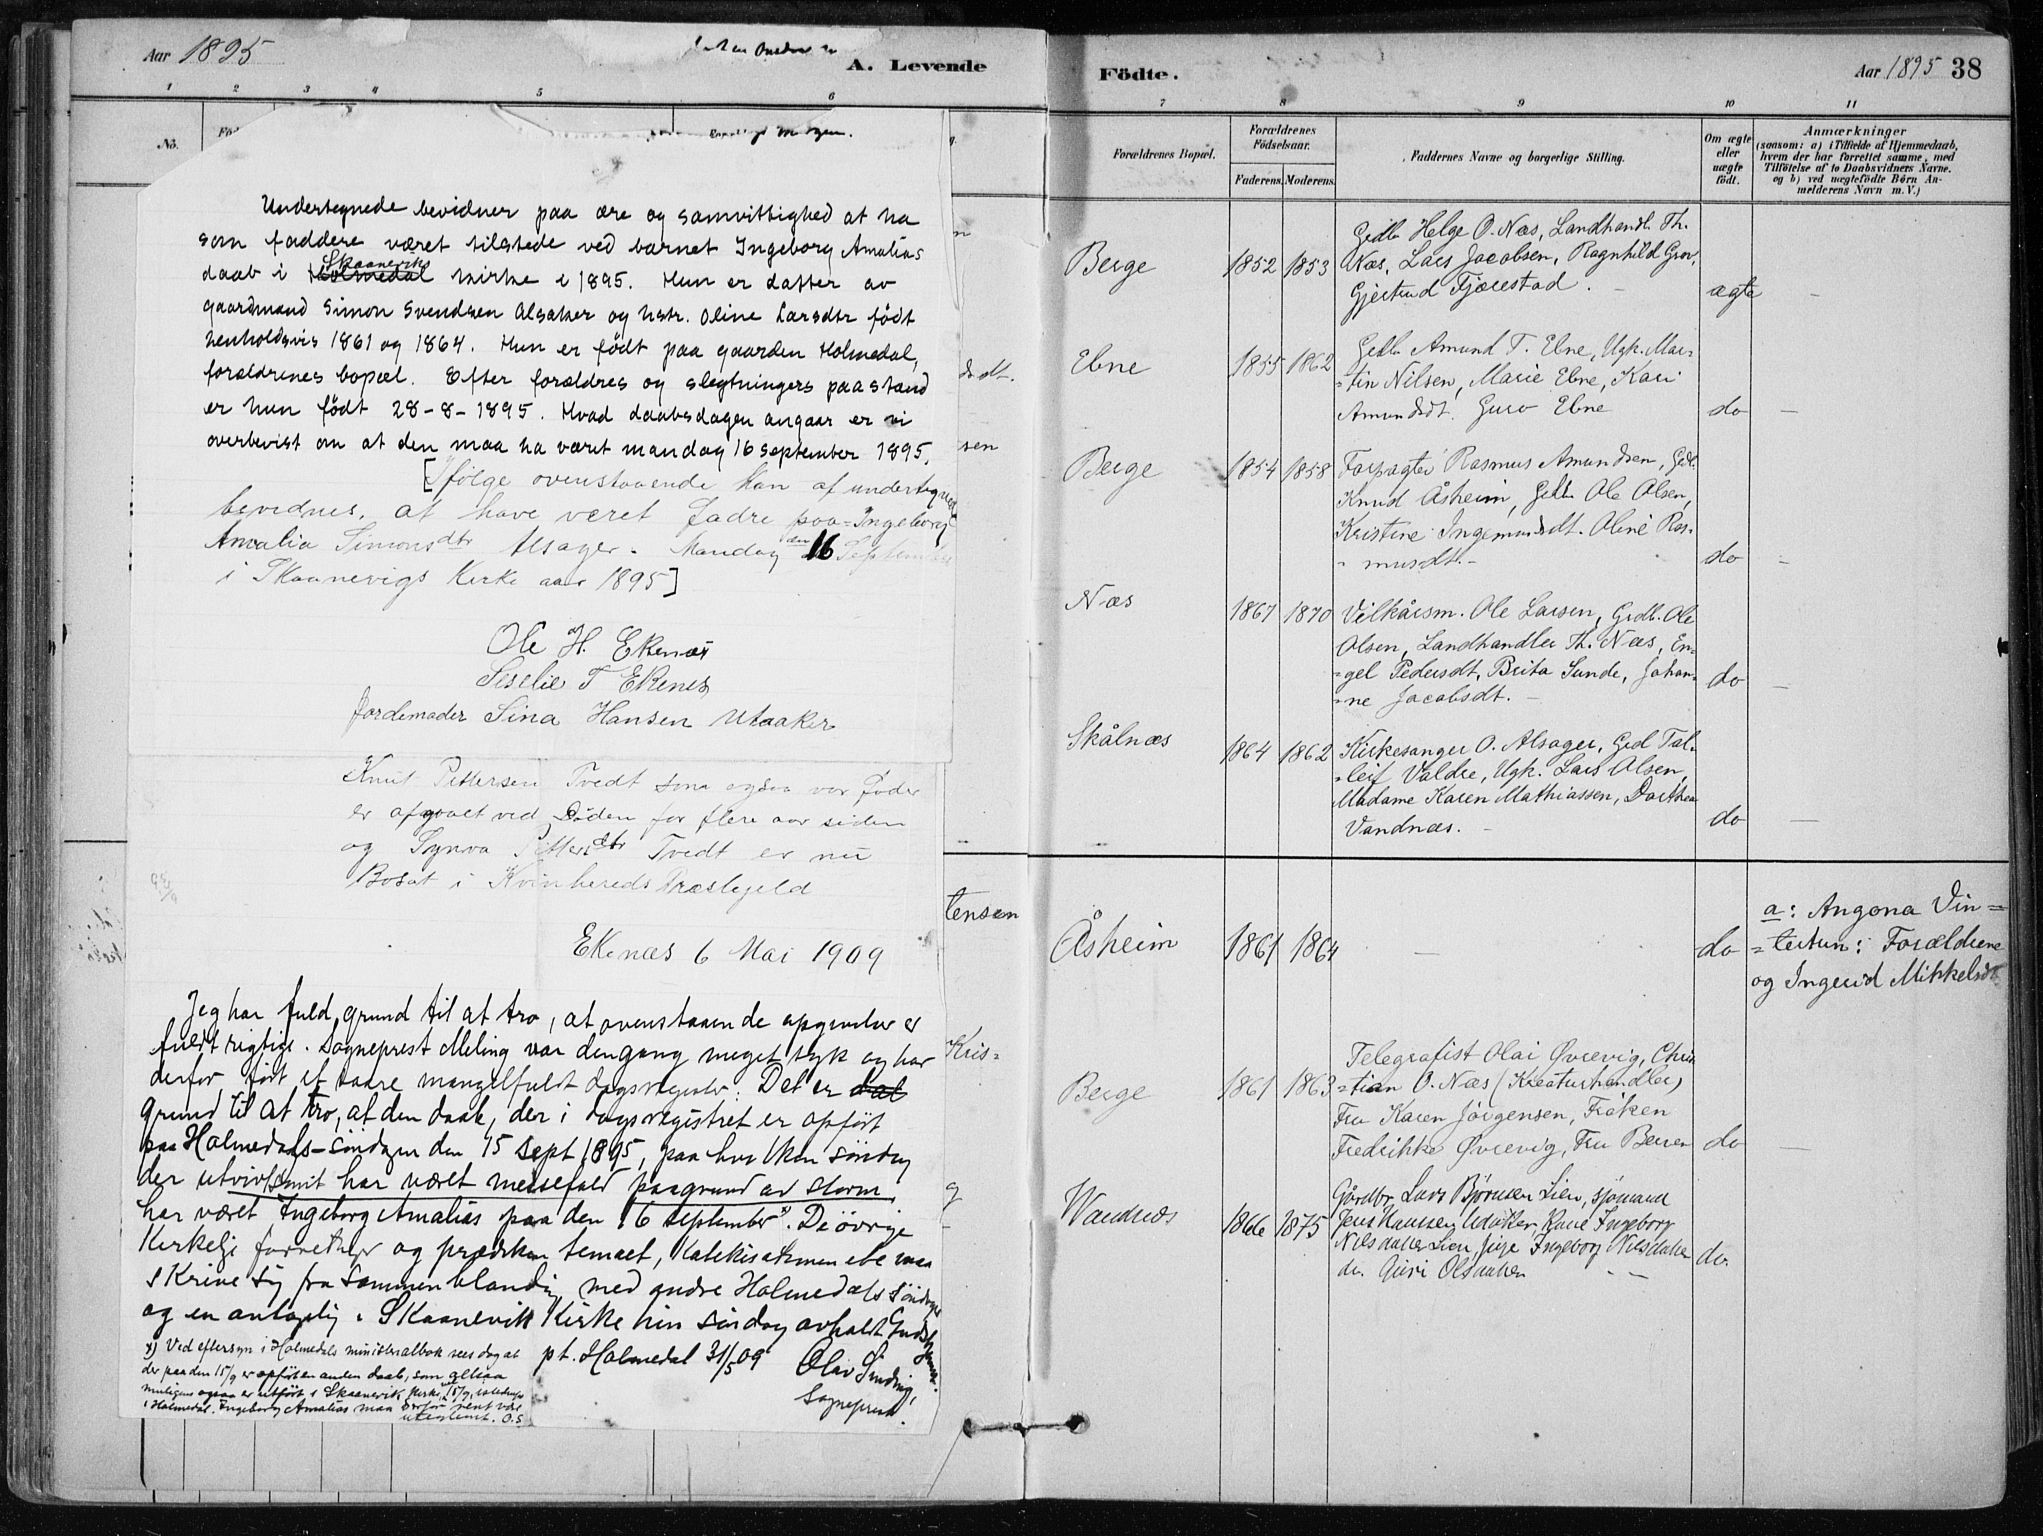 Aar 1895
A. Levende
1 2 3 4 5 6
No.
Undertegnede bevidner paa ære og samvittighed at ha
som faddere været tilstede ved barnet Ingeborg Amalias
Skaaneviks
daab i Holmedal kirke i 1895. Hun er datter av
gaardmand Simon Svendsen Alsaker og hstr. Oline Larsdtr født
henholdsvis 1861 og 1864. Hun er født paa gaarden Holmedal,
forældrenes bopæl. Efter forældres og slegtningers paastand
er hun født 28-8-1895. Hvad daabsdagen angaar er vi
overbevist om at den maa ha været mandag 16 september 1895.
[Ifølge ovenstaaende kan af undertegnede
bevidnes, at have været fadre paa Ingeborg
Amalia Simonsdtr Alsager. Mandag den 16 September
i Skaanevigs Kirke aar 1895]
Ole H. Ekenæs
Seselie T Ekenes
Jordemoder Sina Hansen Utaaker
Knut Pettersen Tvedt som ogsaa var fader
er afgaaet ved Döden for flere aar siden
og Synva Pettersdtr Tvedt er nu
Bosat i Kvinhereds Præstegjeld
Ekenæs 6 Mai 1909
Jeg har fuld grund til at tro, at ovenstaaende opgivelser er
fuldt rigtige. Sogneprest Meling var dengang meget syk og har
derfor ført et saare mangelfuldt dagsregister. Det er dat
grund til at tro, at den daab, der i dagsregistret er opført
paa Holmedals-söndagen den 15 Sept 1895, paa hvilken söndag
der utvivlsomt har været messefald paagrund av storm,
har været Ingeborg Amalias paa den 16 september x). De övrige
Kirkelige forretninger og prædiken temaet, Katekisatsmen etc maa
skrive sig fra sammenblanding med andre Holmedals söndager
og en antagelig i Skaanevik Kirke hin söndag avholdt Gudstjeneste.
pt. Holmedal 31/5 09 Olav Sinding,
Sogneprest.
x) Ved eftersyn i Holmedals ministerialbok sees dog at
der paa den 15/9 er opført en anden daab, som altsaa
muligens ogsaa er utført i Skaanevik Kirke 15/9, istedenfor
i Holmedal. Ingeborg Amalias maa derfor rent være
uteglemt. O.S.
n
dsdt.
sen
tensen
Kris-
g
Födte.
Aar 1895 38
7 8 9 10 11
Forældrenes Bopæl.
Forældrenes Födselsaar.
Faderens. Moderens.
Faddernes Navne og borgerlige Stilling.
Om ægte eller uægte födt.
Anmærkninger
(saasom: a) i Tilfælde af Hjemmedaab,
hvem der har forrettet samme, med
Tilföielse af to Daabsvidners Navne.
og b) ved uægtefödte Börn An-
melderens Navn m. V.)
Berge 1852 1853 Grdbr. Helge O. Næs, Landhandl. Th.
Næs, Lars Jacobsen, Ragnhild Grov,
Gjertrud Fjærestad. - ægte -
Ebne 1855 1862 Gdbr. Amund T. Ebne, Ugk. Mar-
-tin Nilsen, Marie Ebne, Kari
Amundsdt. Guro Ebne do -
Berge 1854 1858 Forpagter Rasmus Amundsen, Gdb.
Knud Åsheim, Gdbr Ole Olsen,
Kristine Ingemundsdt. Oline Ras-
-musdt. - do -
Næs 1867 1870 Vilkårsm. Ole Larsen, Grdb. Ole
Olsen, Landhandler Th. Næs, En-
-gel Pedersdt, Brita Sunde, Johan-
-ne Jacobsdt. - do -
Skålnæs 1864 1862 Kirkesanger O. Alsager, Grd Tal-
-leif Valdre, Ugk. Lars Olsen,
Madame Karen Mathiassen, Dorthea
Vandnæs. - do -
Åsheim 1861 1864 - do a: Angona Vin-
-tertun: Forældrene
og Ingerid Mikkelsdt
Berge 1861 1863 Telegrafist Olai Øvrevig, Chris
-tian O. Næs (Kreaturhandler)
Fru Karen Jörgensen, Fröken
Fredrikke Øvrevig, Fru Berven do -
Wandnes 1866 1875 Gårdbr. Lars Bjørnsen Lien, sjömand
Jens Hanssen Utåker, Kone Ingeborg
Nilsdatter Lien, Pige Ingeborg Nilsdatter
do. Guri Olsdatter - do.